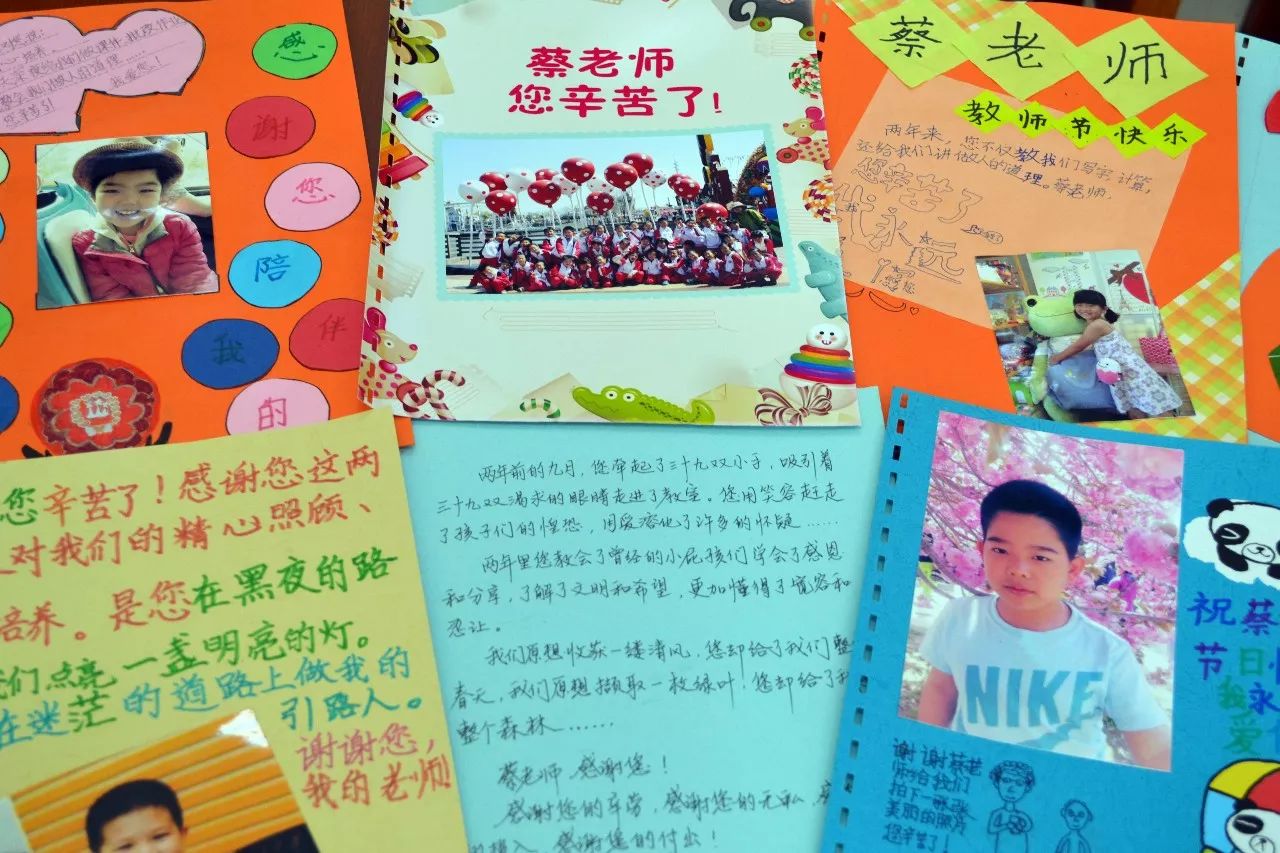 感
谢
您
陪
我
伴
的
蔡老师
您辛苦了!
蔡老师
教师节快乐
两年来,您不仅教我们写字、计算,
还给我们讲做人的道理。蔡老师,
您辛苦了
我永远
您辛苦了!感谢您这两
对我们的精心照顾、
培养。是您在黑夜的路
们点亮一盏明亮的灯。
在迷茫的道路上做我的
引路人。
谢谢您,
我的老师!
两年前的九月,您牵起了三十九双小手,吸引着
三十九双渴求的眼睛走进了教室。您用笑容赶走
了孩子们的惶恐,用爱溶化了许多的怀疑……
两年里您教会了曾经的小屁孩们学会了感恩
和分享,了解了文明和希望,更加懂得了宽容和
忍让。
我们原想收获一缕清风,您却给了我们整
春天,我们原想撷取一枚绿叶!您却给了我
整个森林……
蔡老师 感谢您!
感谢您的辛劳,感谢您的无私,
感谢您的付出!
NIKE
祝蔡
节日快
我永
爱
谢谢蔡老
师给我们
拍下一张张
美丽的照片
您辛苦了!